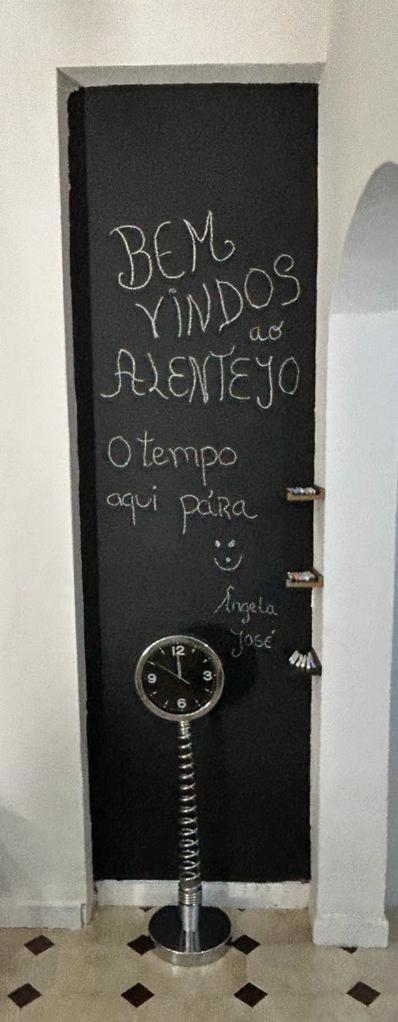 BEM
VINDOS
ao
ALENTEJO
O tempo
aqui pára
Ângela
José
12
9 3
6